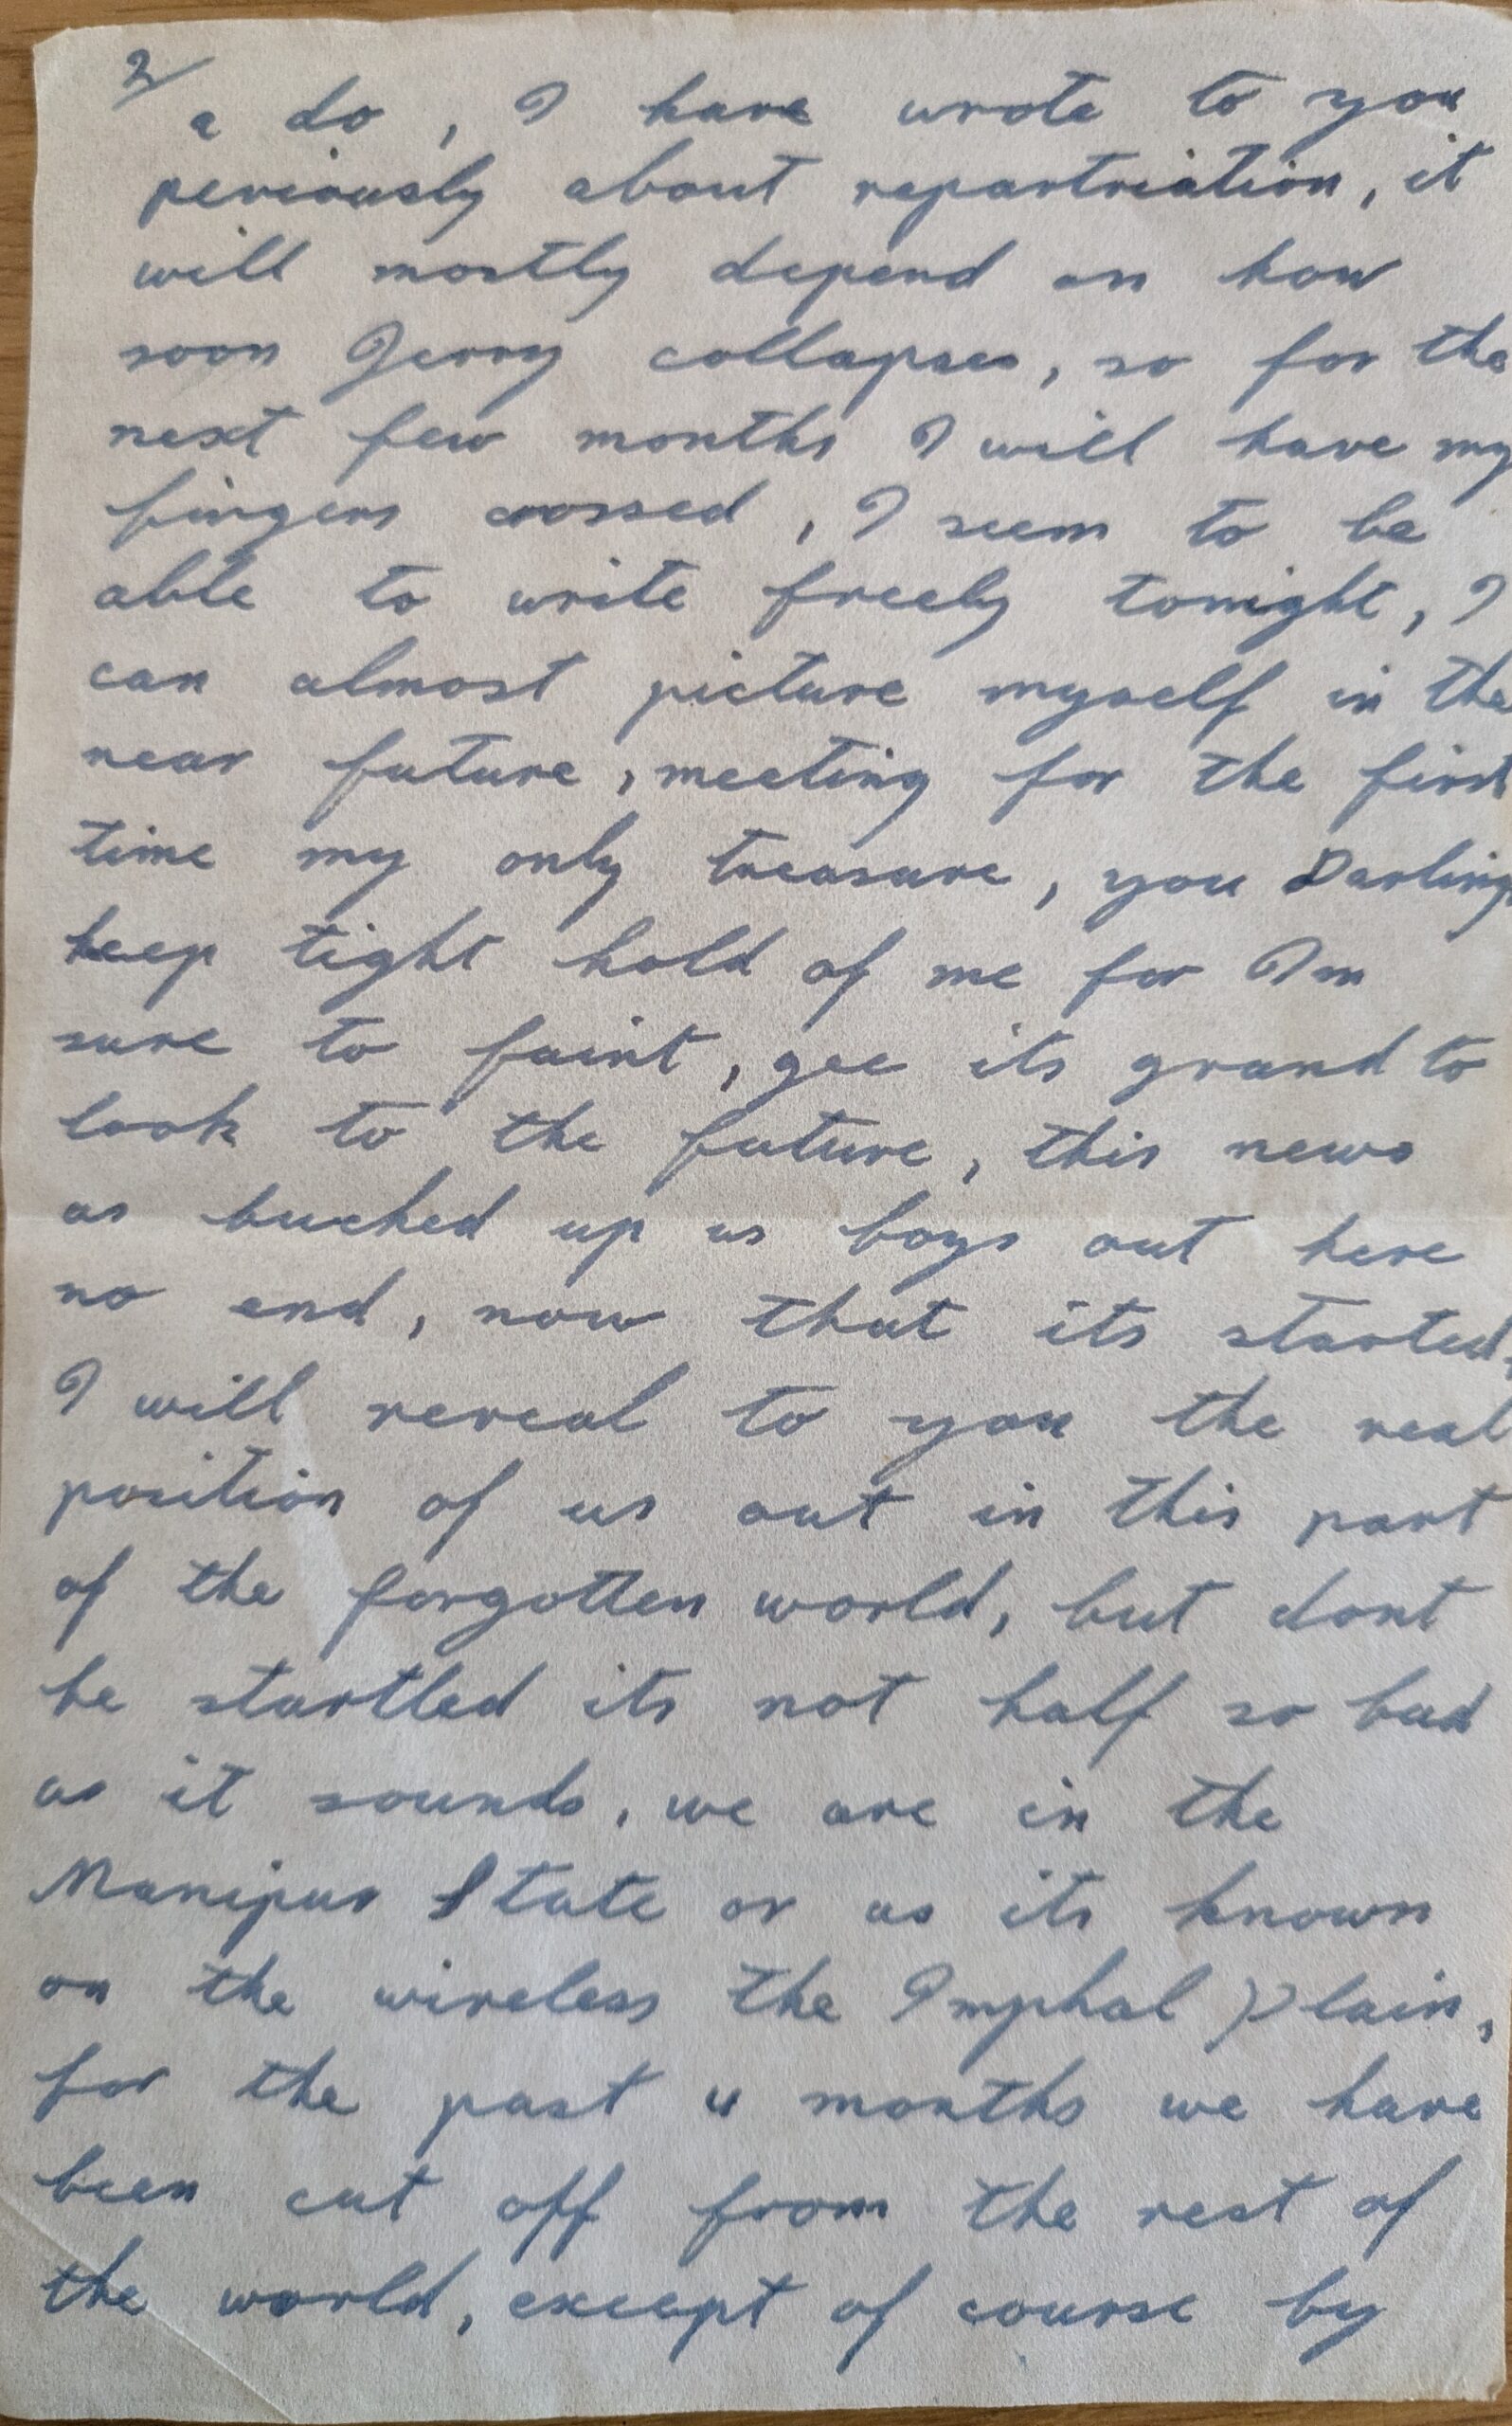 2/
a do, I have wrote to you
periviously about repartriation, it
will mostly depend on how
soon Jerry collapses, so for the
next few months I will have my
fingers crossed, I seem to be
able to write freely tonight, I
can almost picture myself in the
near future, meeting for the first
time my only treasure, you Darling
keep tight hold of me for Im
sure to faint, gee its grand to
look to the future, this news
as bucked up us boys out here
no end, now that its started,
I will reveal to you the real
position of us out in this part
of the forgotten world, but dont
be startled its not half so bad
as it sounds, we are in the
Manipur State or as its known
on the wireless the Imphal Plain,
for the past 4 months we have
been cut off from the rest of
the world, except of course by